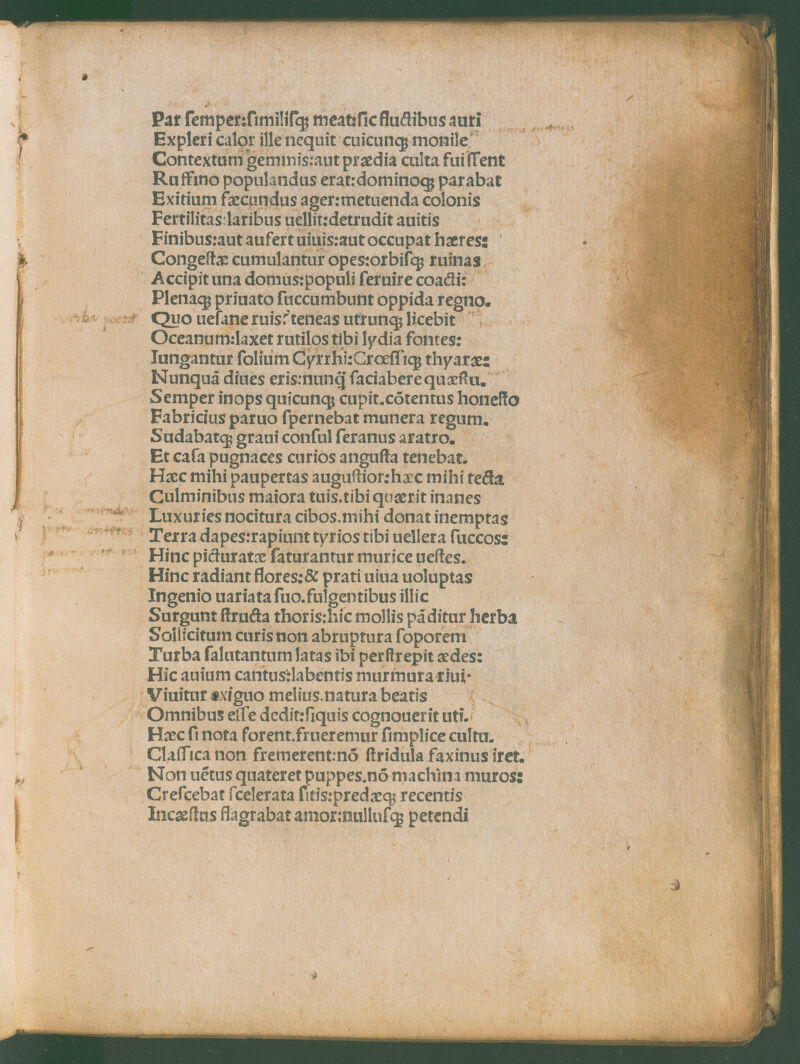 Par semper:similisq; meatᵢ sic fluctibus auri
Expleri calor ille nequit cuicunq; monile
Contextum gemmis:aut prædia culta fuissent
Ruffino populandus erat:dominoq; parabat
Exitium fæcundus ager:metuenda colonis
Fertilitas:laribus uellit:detrudit auitis
Finibus:aut aufert uiuis:aut occupat hæres:
Congestæ cumulantur opes:orbisq; ruinas
Accipit una domus:populi seruire coacti:
Plenaq; priuato succumbunt oppida regno.
Quo uesane ruis?teneas utrunq; licebit
Oceanum:laxet rutilos tibi lydia fontes:
Iungantur solium Cyrrhi:Crœssiq; thyaræ:
Nunquā diues eris:nunq̄ saciabere quæstu.
Semper inops quicunq; cupit.cōtentus honesto
Fabricius paruo spernebat munera regum.
Sudabatq; graui consul seranus aratro.
Et casa pugnaces curios angusta tenebat.
Hæc mihi paupertas augustior:hæc mihi tecta
Culminibus maiora tuis.tibi quærit inanes
Luxuries nocitura cibos.mihi donat inemptas
Terra dapes:rapiunt tyrios tibi uellera succos:
Hinc picturatæ saturantur murice uestes.
Hinc radiant flores:& prati uiua uoluptas
Ingenio uariata suo.fulgentibus illic
Surgunt structa thoris:hic mollis pāditur herba
Sollicitum curis non abruptura soporem
Turba salutantum latas ibi perstrepit ædes:
Hic auium cantus:labentis murmura riui.
Viuitur exiguo melius.natura beatis
Omnibus esse dedit:siquis cognouerit uti.
Hæc si nota forent.frueremur simplice cultu.
Classica non fremerent:nō stridula faxinus iret.
Non uētus quateret puppes.nō machina muros:
Crescebat scelerata sitis:predæq; recentis
Incæstus flagrabat amor:nullusq; petendi